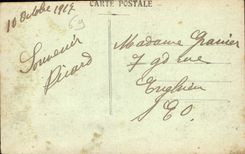 CARTE POSTALE
10 Octobre 1917
59
Souvenir
Picard
Madame Granier
7 gd rue
Enghien
S EO.